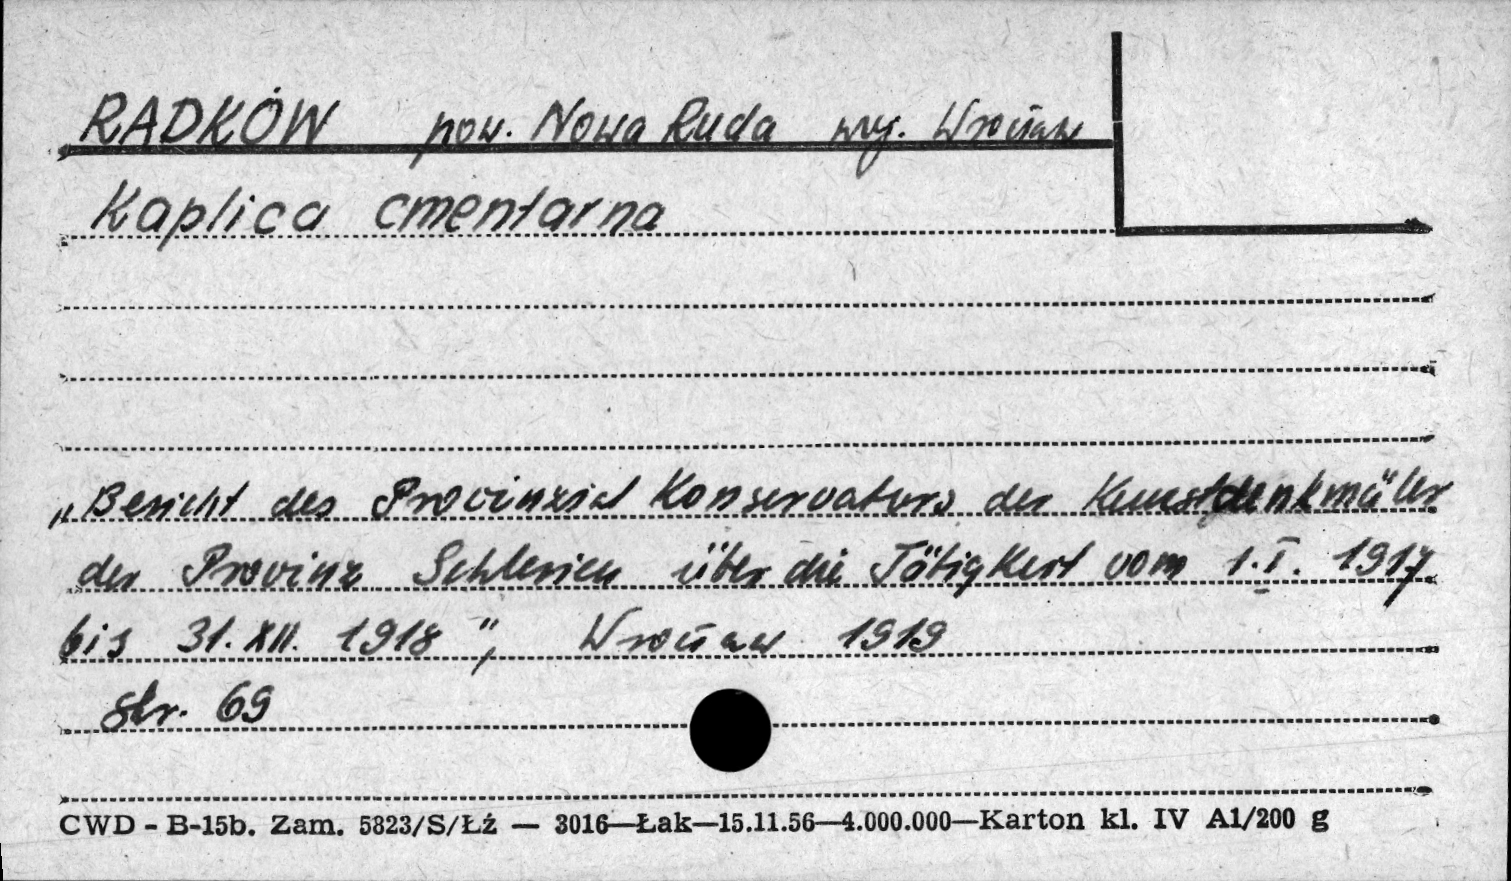 RADKÓW pow. Nowa Ruda woj. Wrocław
Kaplica cmentarna
„Bericht des Provinzial Konservators der Kunstdenkmäler
der Provinz Schlesien über die Tätigkeit vom 1.I. 1917
bis 31.XII. 1918", Wrocław 1919
str. 69
CWD - B-15b. Zam. 5823/S/Łź — 3016—Łak—15.11.56—4.000.000—Karton kl. IV A1/200 g